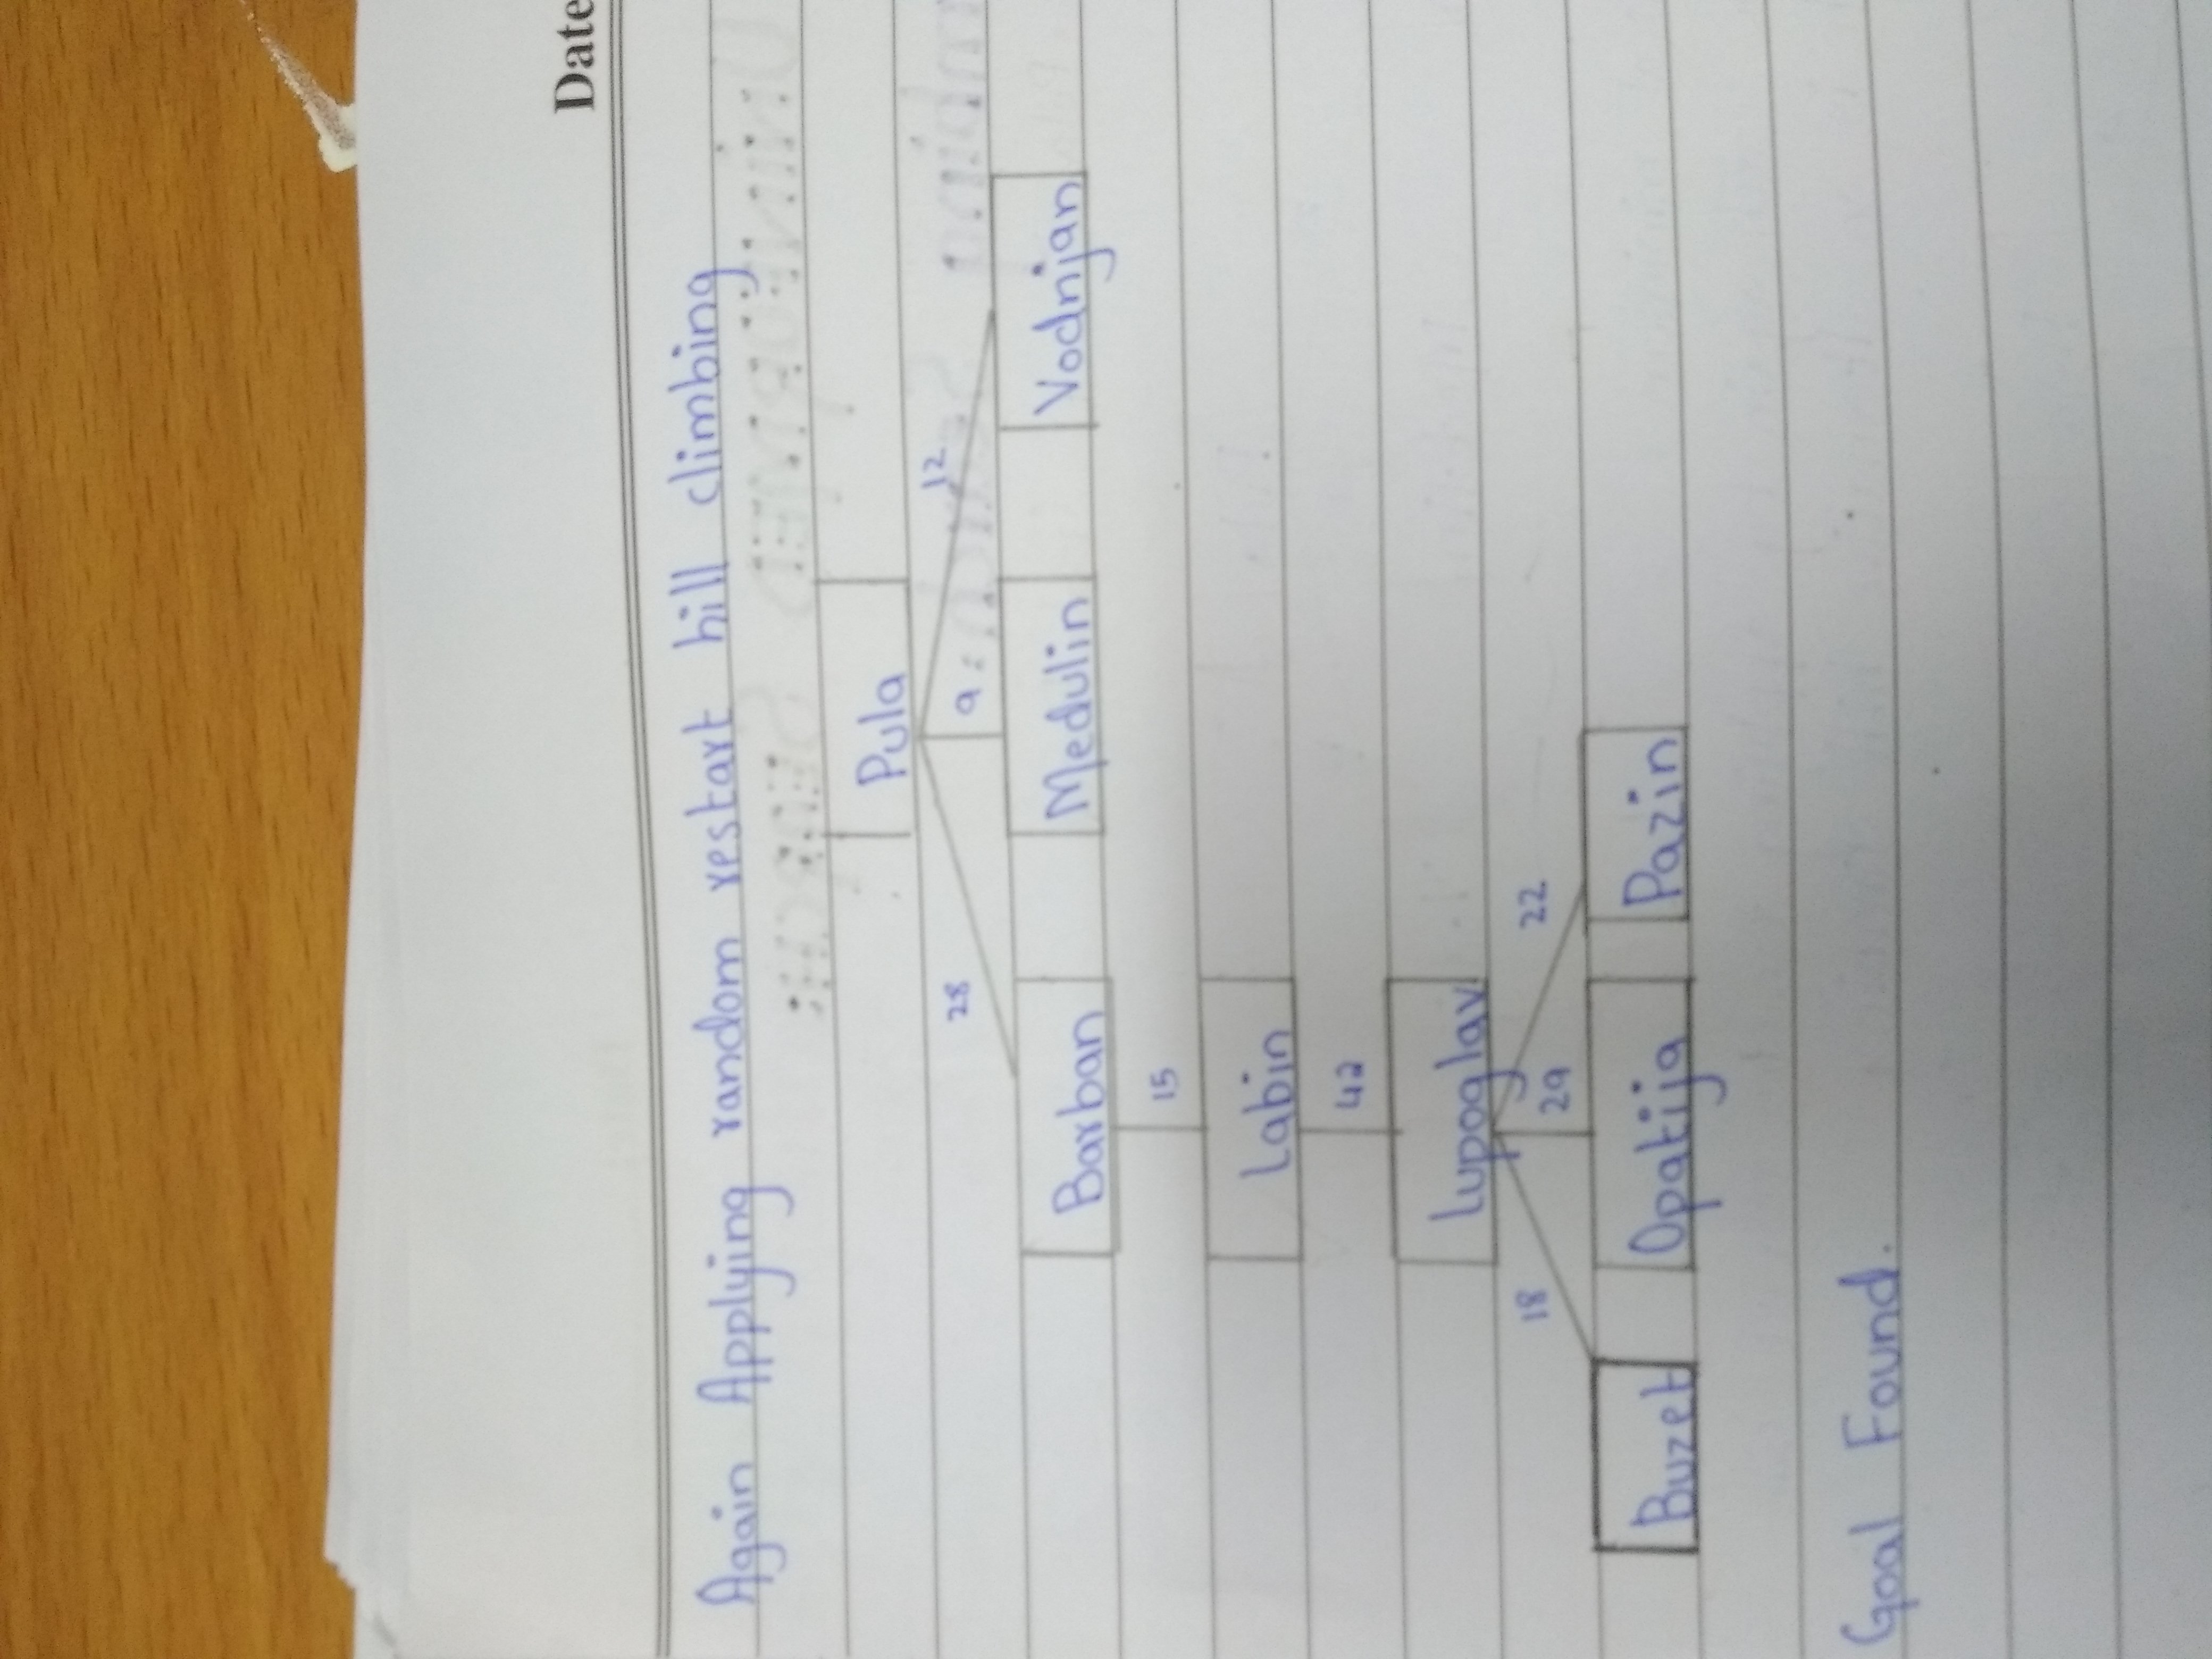 Date
Again Applying random restart hill climbing
Pula
28 9 12
Barban Medulin Vodnjan
15
Labin
42
Lupoglav
18 29 22
Buzet Opatija Pazin
Goal Found.